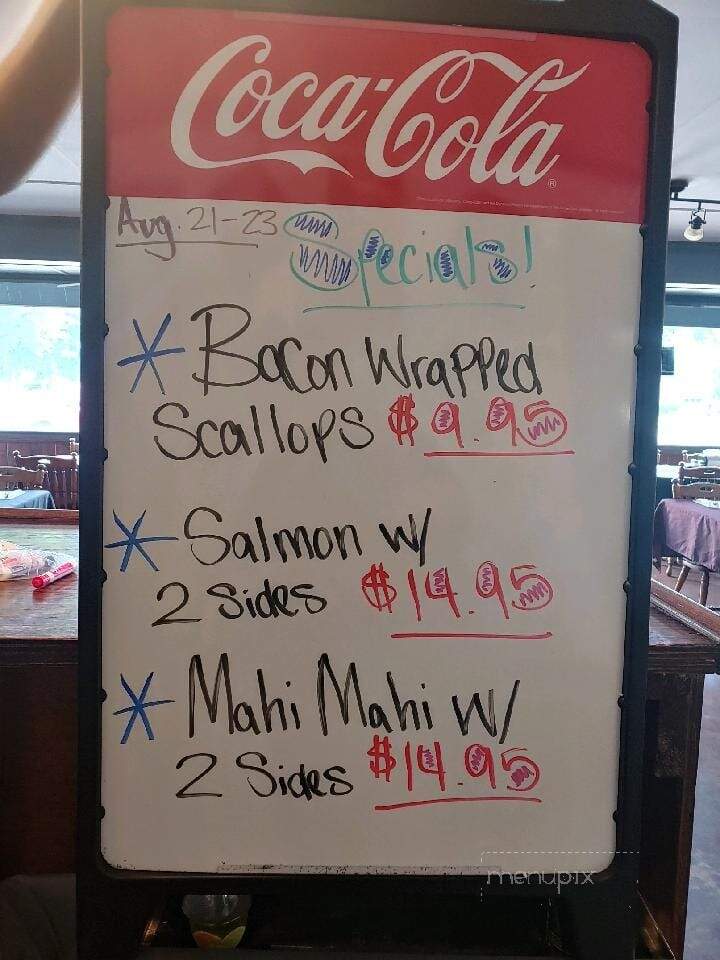 Coca-Cola®
Aug. 21-23 Specials!
* Bacon Wrapped
Scallops $9.95
* Salmon w/
2 Sides $14.95
* Mahi Mahi w/
2 Sides $14.95
menupix